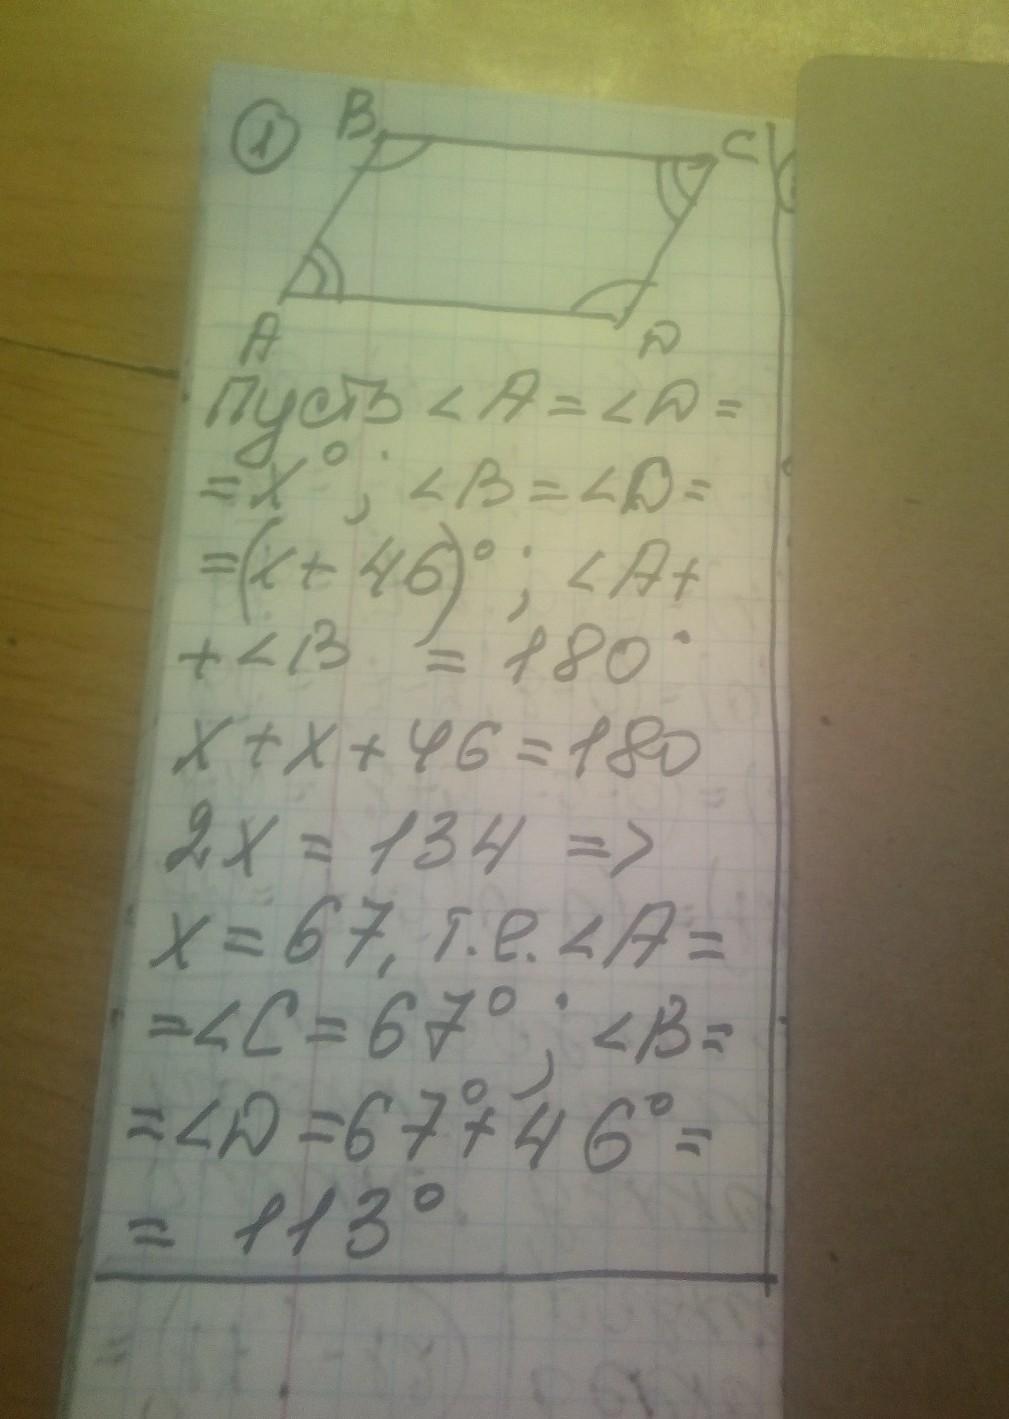 1 B C
A D
Пусть ∠A = ∠D =
= x°; ∠B = ∠D =
= (x + 46)°; ∠A +
+ ∠B = 180°
x + x + 46 = 180
2x = 134 =>
x = 67, т.е. ∠A =
= ∠C = 67°; ∠B =
= ∠D = 67° + 46° =
= 113°